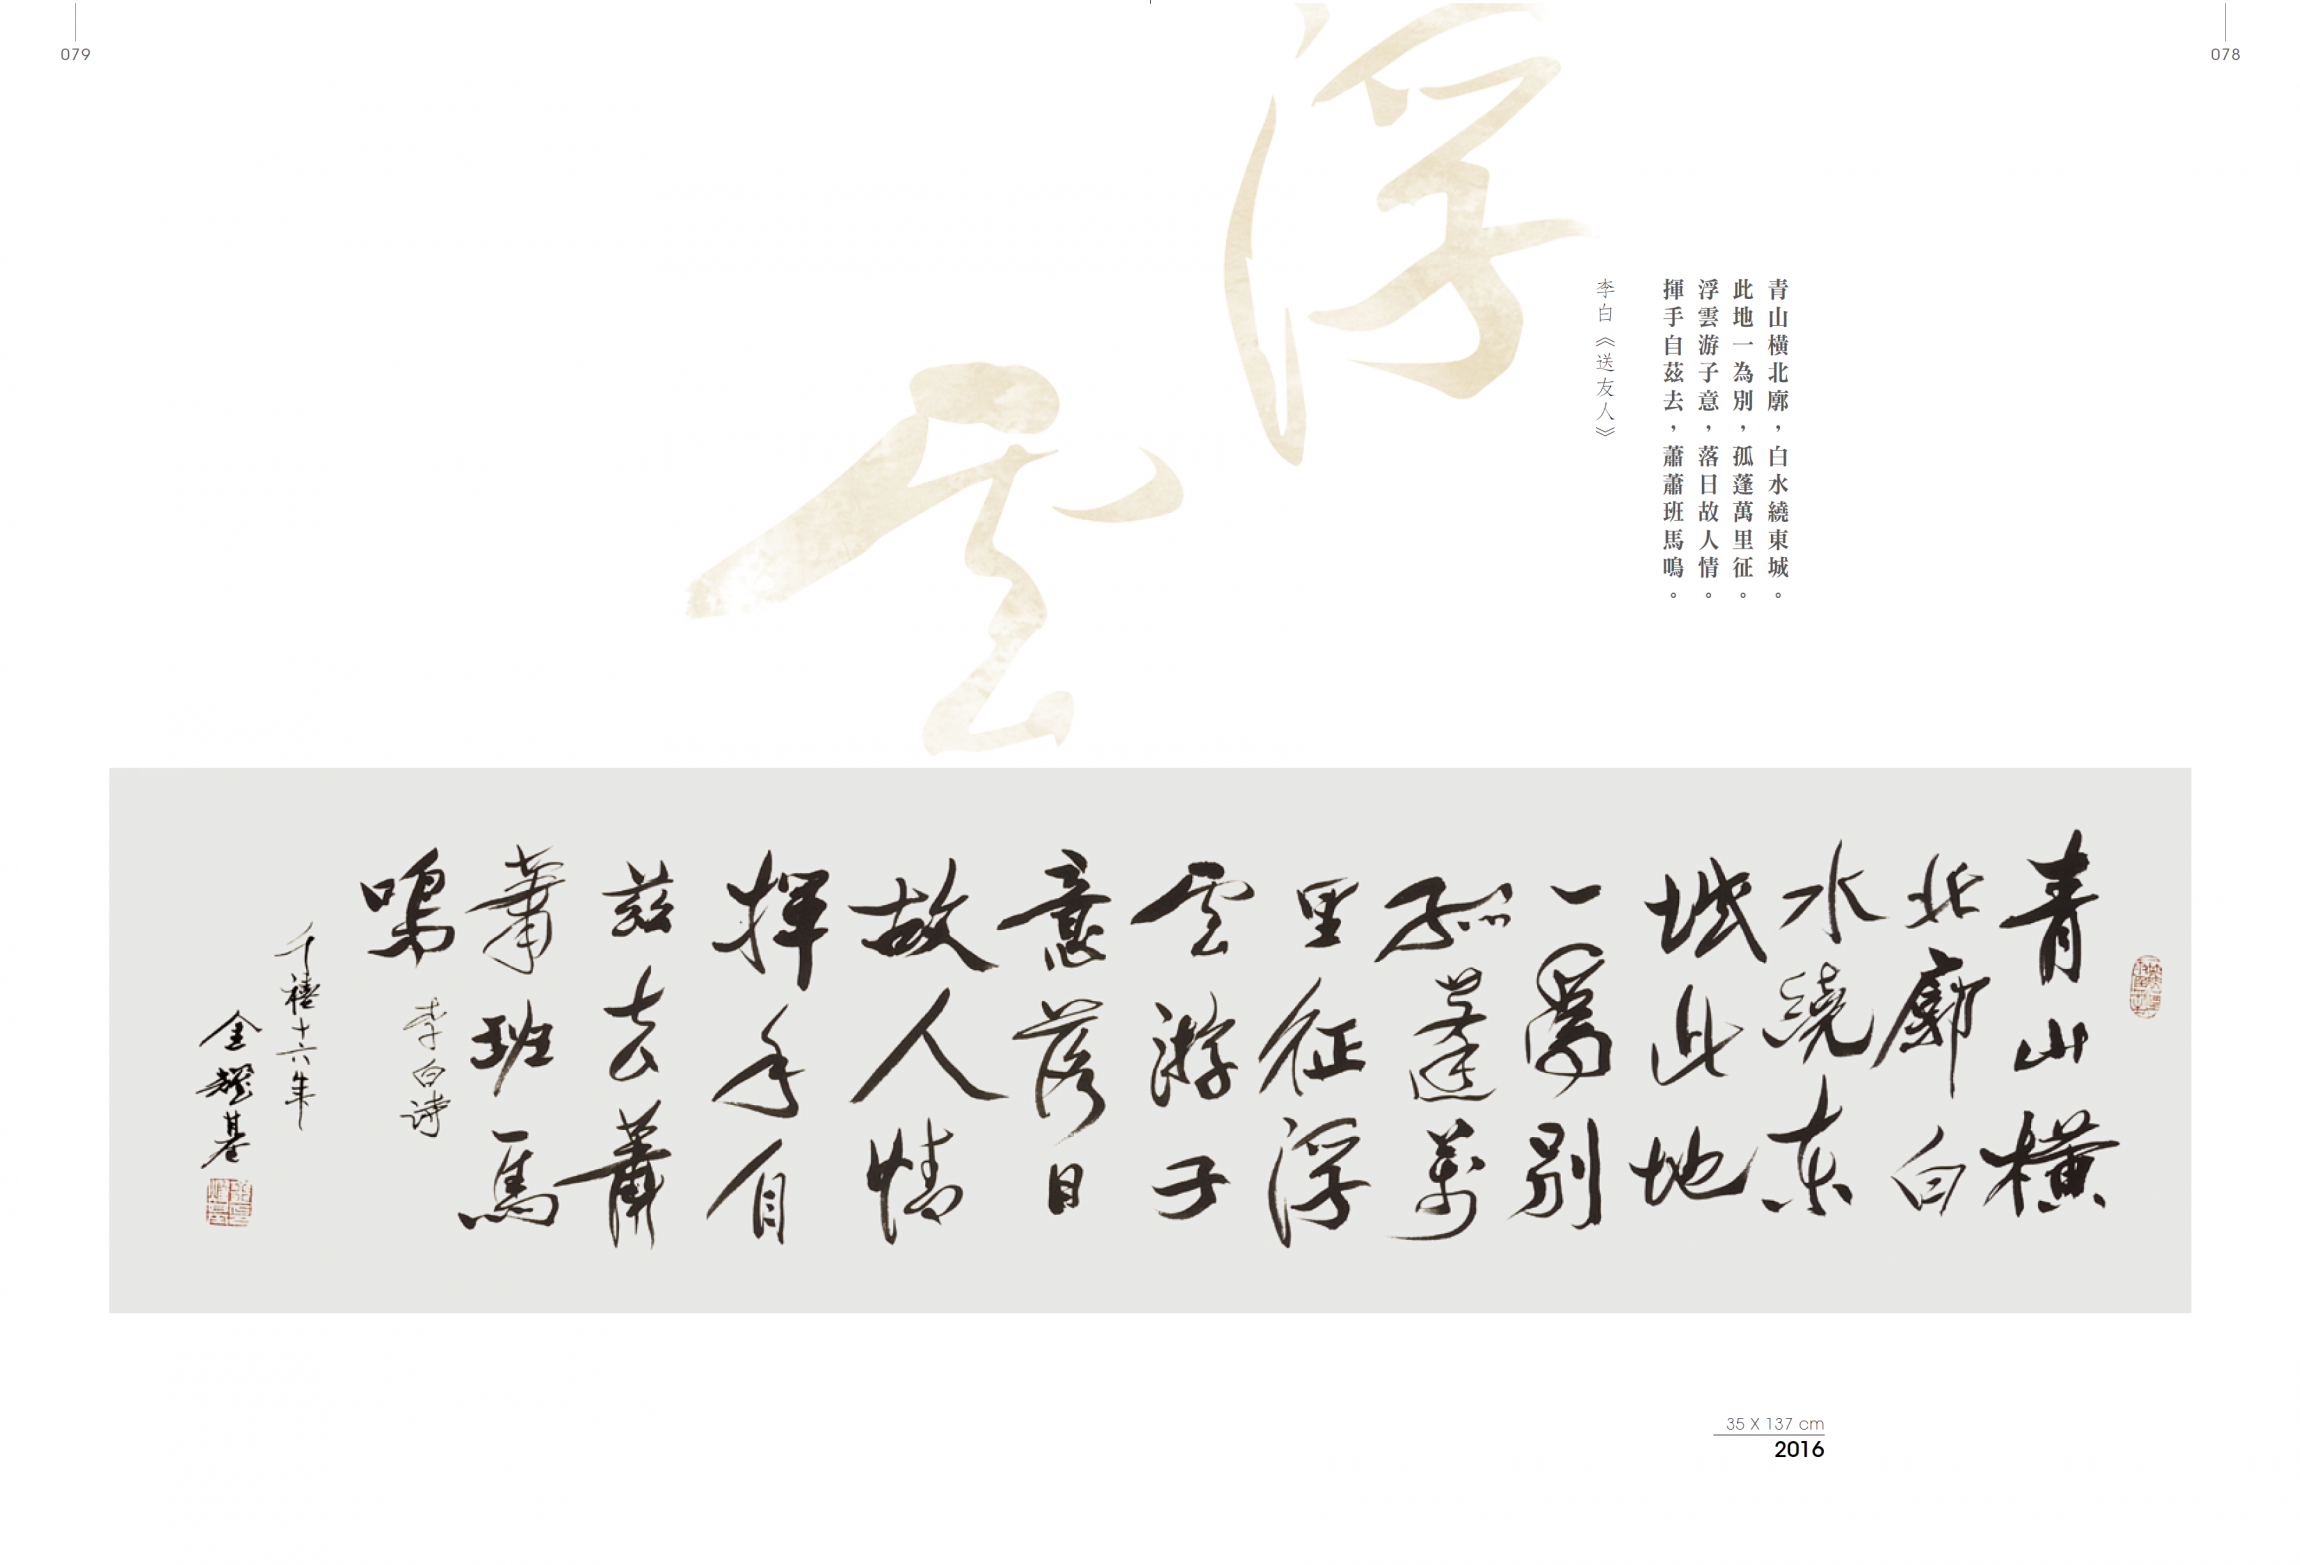 078
079
浮
雲
青山橫北廓，白水繞東城。
此地一為別，孤蓬萬里征。
浮雲游子意，落日故人情。
揮手自茲去，蕭蕭班馬鳴。
李白《送友人》
青山橫
北廓白
水繞东
城此地
一為別
孤蓬萬
里征浮
云游子
意落日
故人情
揮手自
茲去蕭
蕭班馬
鳴 李白诗
千禧十六年
金耀基
35 X 137 cm
2016